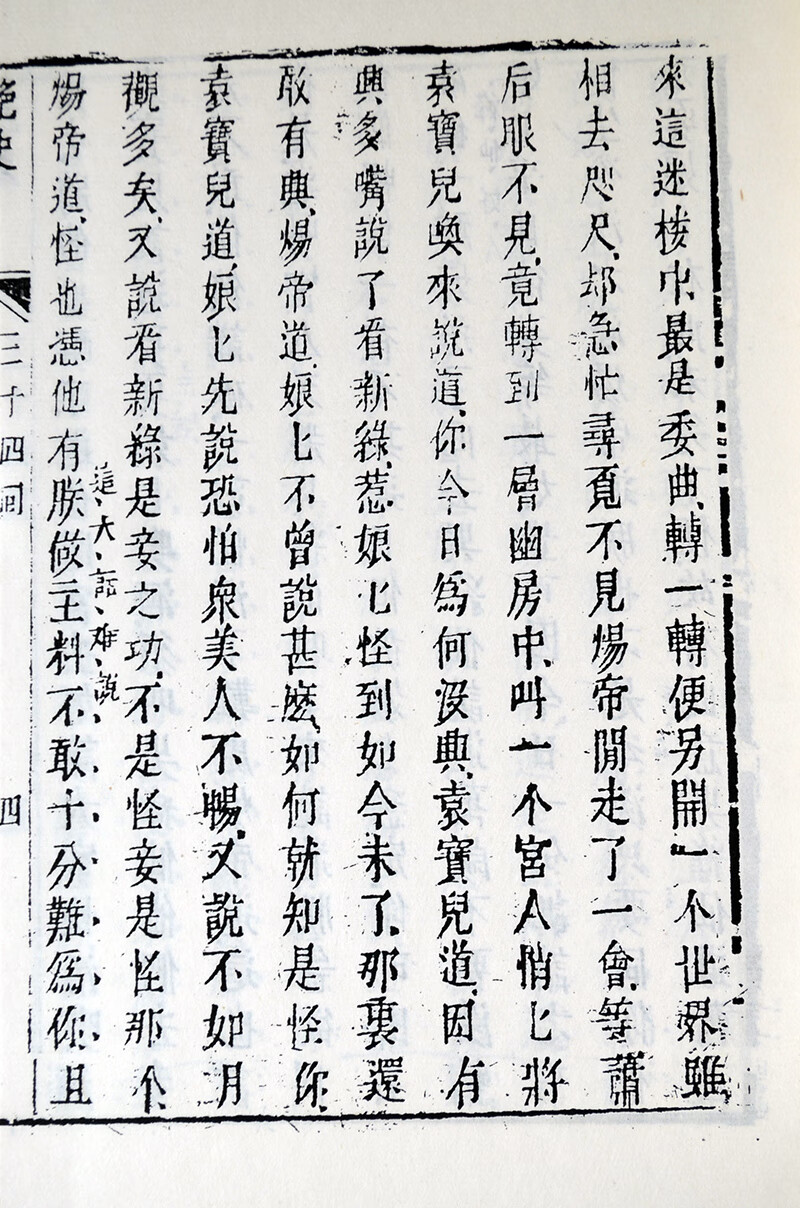 來這迷樓中、最是委曲、轉一轉便另開一个世界、雖
相去咫尺、却急忙尋覔不見煬帝閒走了一會、等蕭
后眼不見、竟轉到一層幽房中、叫一个宮人悄匕將
袁寶兒喚來說道、你今日爲何沒興、袁寶兒道、因有
興多嘴說了看新綠、惹娘匕怪到如今未了、那裏還
敢有興、煬帝道、娘匕不曾說甚麽、如何就知是怪你、
袁寶兒道、娘匕先說恐怕衆美人不暢、又說不如月
觀多矣、又說看新綠是妾之功、不是怪妾是怪那个、
煬帝道、怪也憑他有朕做主料不敢十分難爲你、且
這、大、話、难、說
艷史
三十四囬
四